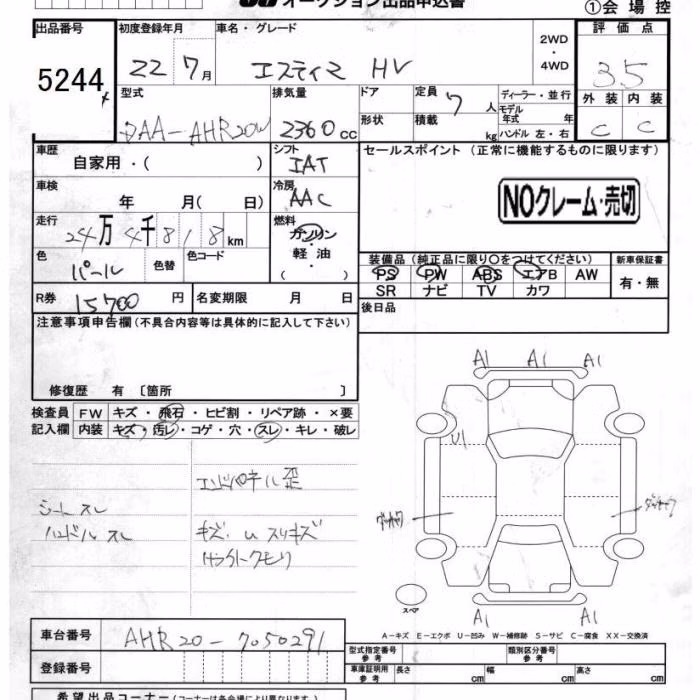 オークション出品申込書
①会場控
出品番号 初度登録年月 車名・グレード 2WD・4WD 評価点
5244 22 7月 エスティマ HV 3.5
型式 排気量 ドア 定員 7人 ディーラー・並行 外装 内装
DAA-AHR20W 2360cc 形状 積載 kg モデル年式 年 ハンドル 左・右 C C
車歴 シフト セールスポイント (正常に機能するものに限ります)
自家用・( ) IAT
車検 冷房
年 月( 日) AAC NOクレーム・売切
走行 燃料
24万4千818km ガソリン・軽油・( )
色 色替 色コード 装備品(純正品に限り○をつけてください) 新車保証書
パール PS PW ABS エアB AW 有・無
SR ナビ TV カワ
R券 15700円 名変期限 月 日 後日品
注意事項申告欄(不具合内容等は具体的に記入して下さい)
修復歴 有〔箇所 〕
検査員 FW キズ・飛石・ヒビ割・リペア跡・×要
記入欄 内装 キズ・汚レ・コゲ・穴・スレ・キレ・破レ
A1 A1 A1
U1
エンドパネル歪
シートスレ
ハンドルスレ キズ・Uスリキズ
A1 A1
スペア
A-キズ E-エクボ U-凹み W-補修跡 S-サビ C-腐食 XX-交換済
車台番号 AHR20-7050291 型式指定番号 参考 類別区分番号 参考
登録番号 車庫証明用 参考 長さ cm 幅 cm 高さ cm
希望出品コーナー(コーナーは各会場により異なります)